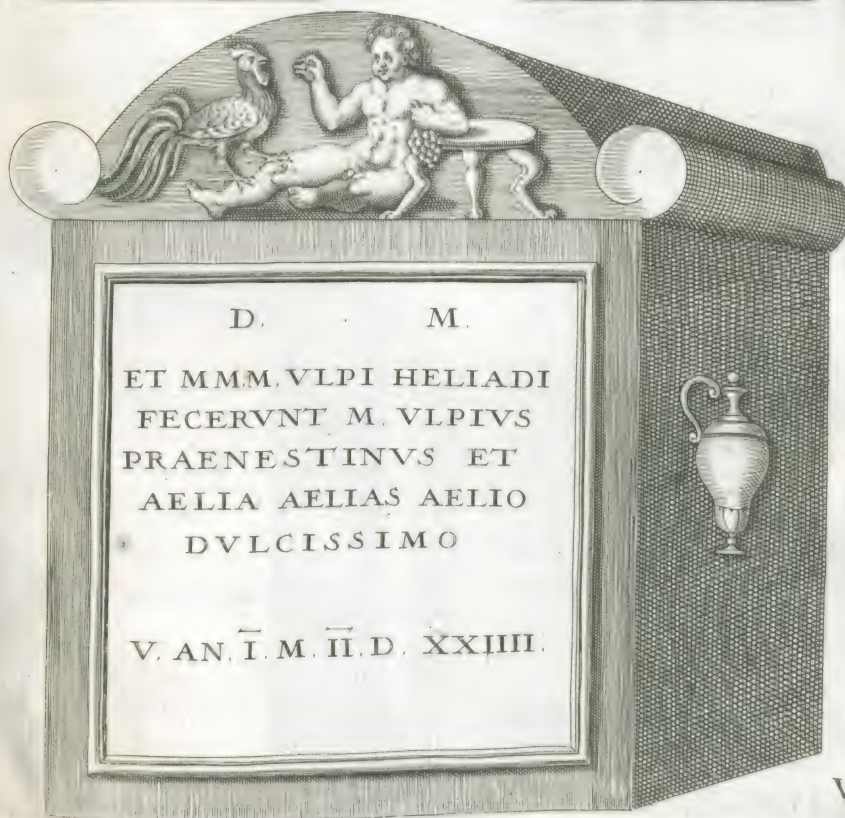 D. M.
ET MM.M. VLPI HELIADI
FECERVNT M. VLPIVS
PRAENESTINVS ET
AELIA AELIAS AELIO
DVLCISSIMO
V. AN. Ī. M. ĪĪ. D. XXIIII.
V